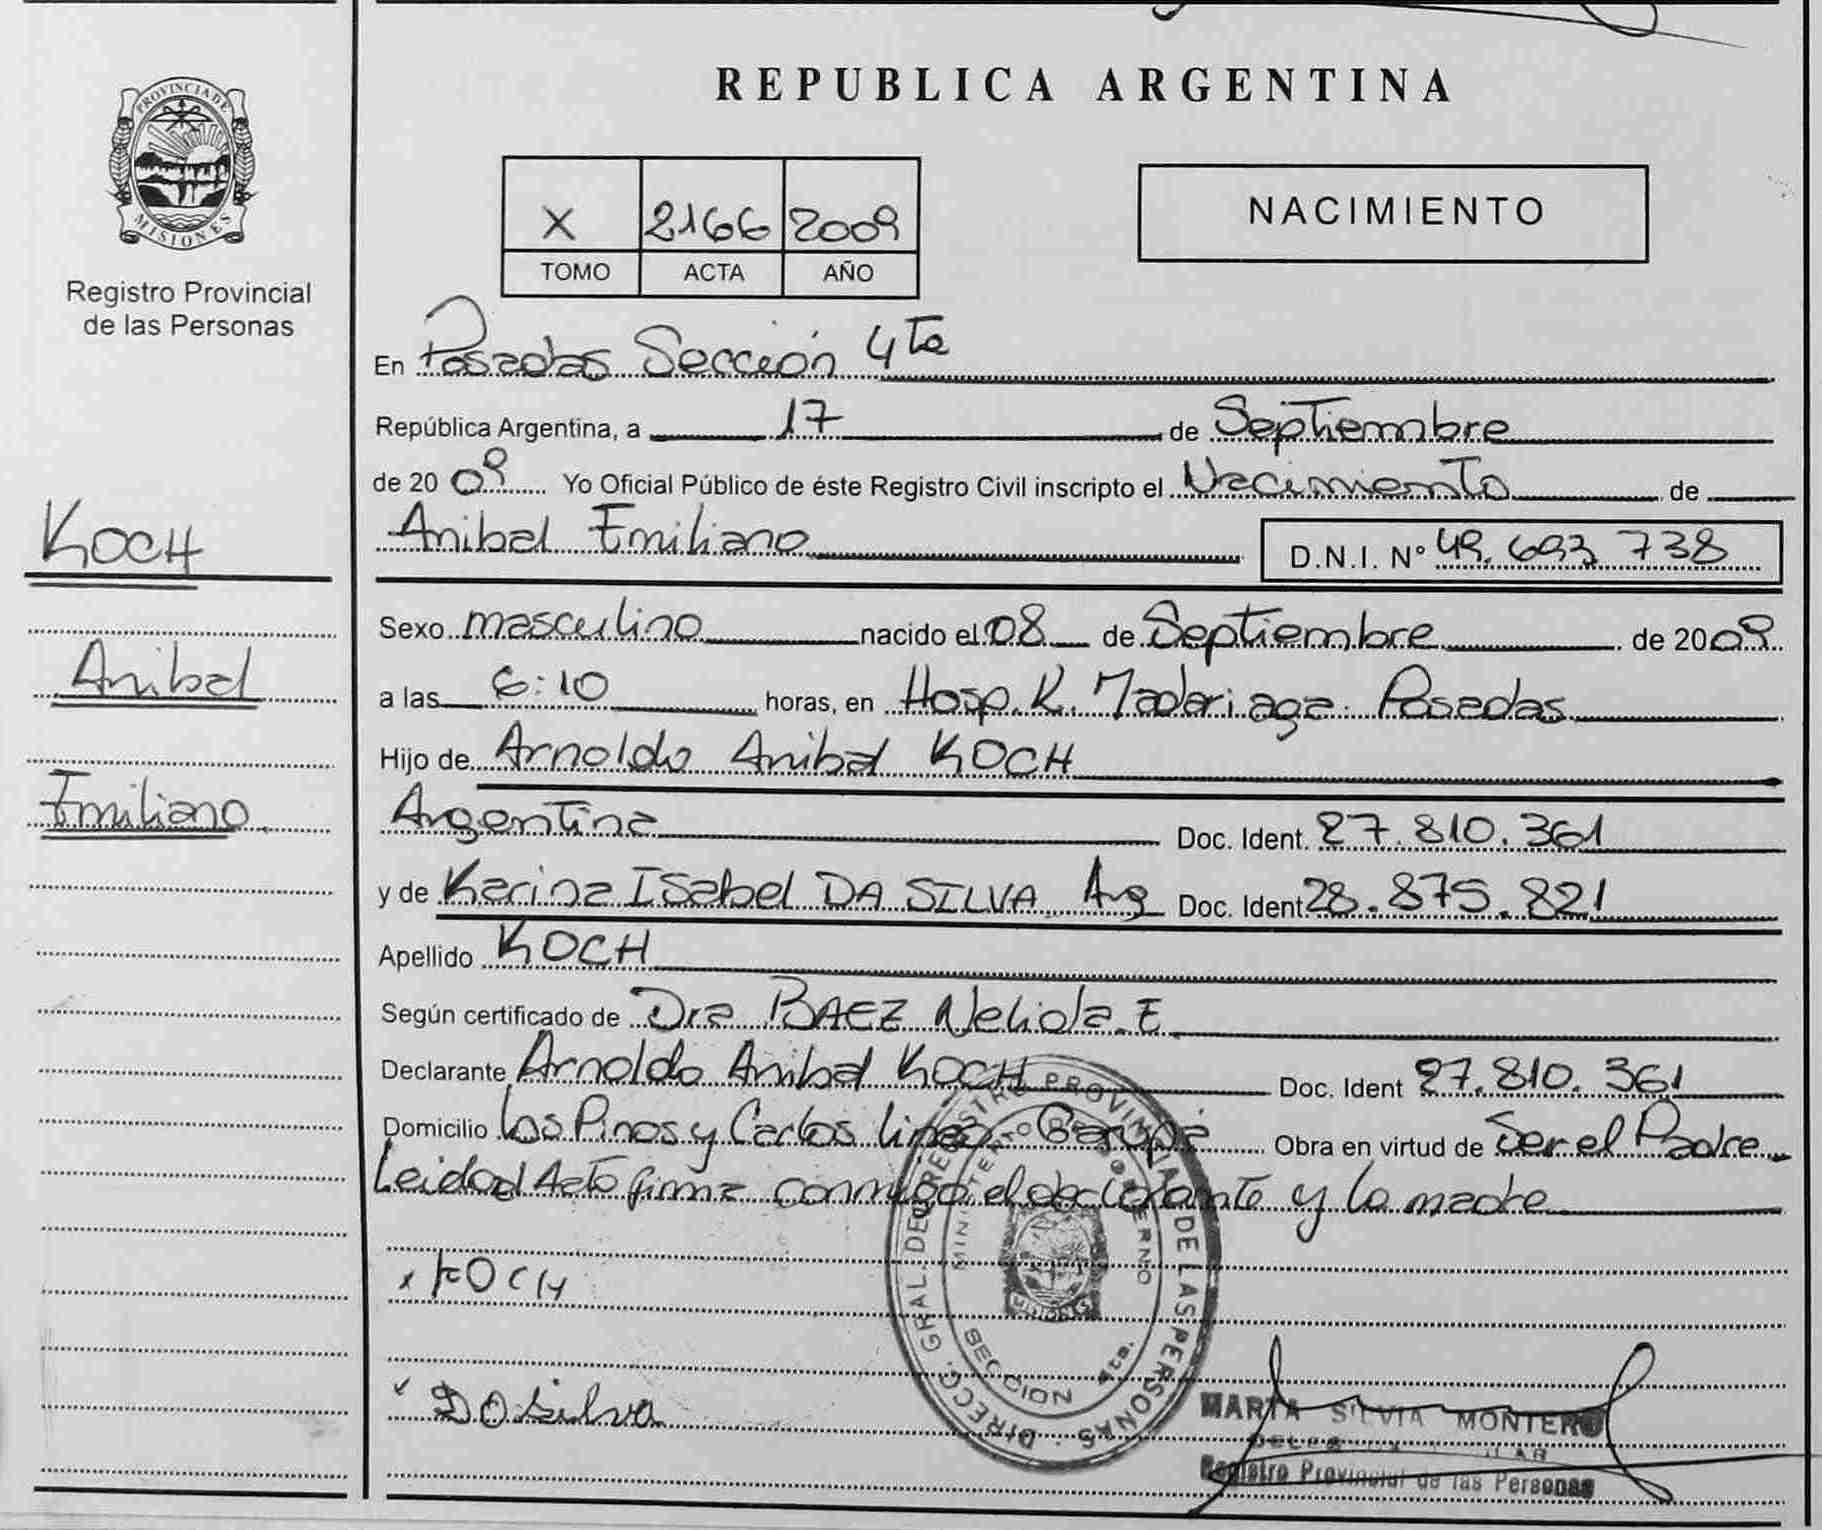 PROVINCIA DE
MISIONES
Registro Provincial
de las Personas
KOCH
Anibal
Emiliano
REPUBLICA ARGENTINA
X 2166 2009
TOMO ACTA AÑO
NACIMIENTO
En Posadas Sección 4ta
República Argentina, a 17 de Septiembre
de 2009 Yo Oficial Público de éste Registro Civil inscripto el Nacimiento de
Anibal Emiliano D.N.I. Nº 49.693 738
Sexo masculino nacido el 08 de Septiembre de 2009
a las 6:10 horas, en Hosp. R. Madariaga. Posadas
Hijo de Arnoldo Anibal KOCH
Argentina Doc. Ident. 27.810.361
y de Karina Isabel DA SILVA Arg Doc. Ident 28.875.821
Apellido KOCH
Según certificado de Dra BAEZ Neliola. E
Declarante Arnoldo Anibal KOCH Doc. Ident 27.810.361
Domicilio Los Pinos y Carlos Lineo Garupá Obra en virtud de Ser el Padre
Leida el Acta firma conmigo el declarante y la madre
x KOCH
Da Silva
DIRECC. GRAL. DE REGISTRO PROVINCIAL DE LAS PERSONAS
MINISTERIO DE GOBIERNO
MISIONES
SECCION 4ta.
MARTA SILVIA MONTERO
Registro Provincial de las Personas